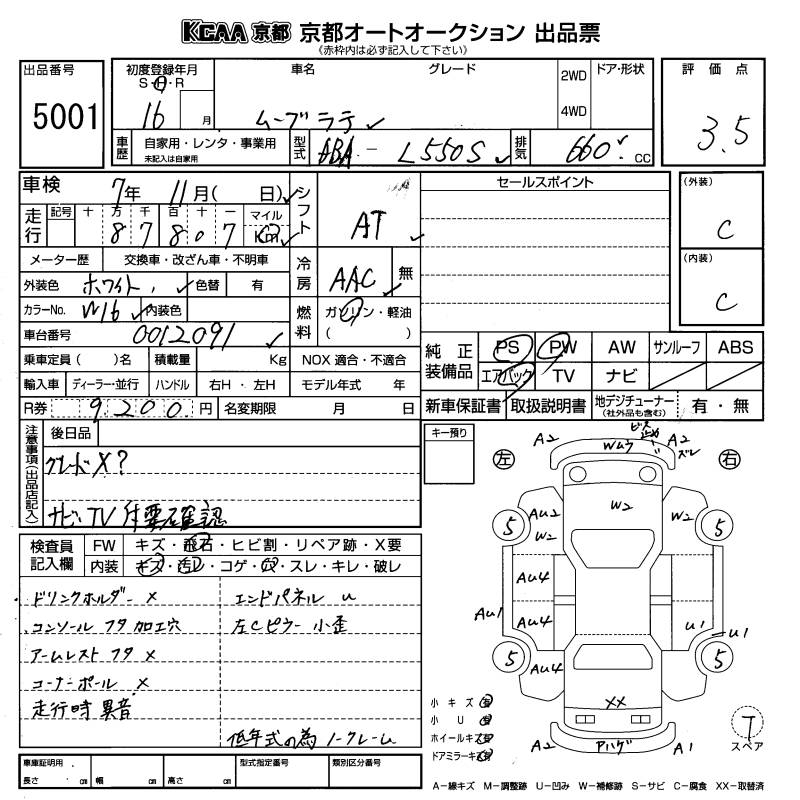 KCAA 京都 京都オートオークション 出品票
(赤枠内は必ず記入して下さい)
出品番号
5001
初度登録年月
S・H・R
16 月
車名
グレード
ムーブラテ
2WD
4WD
ドア・形状
評価点
3.5
車歴
自家用・レンタ・事業用
未記入は自家用
型式
ABA - L550S
排気
660 CC
車検 7年 11月( 日)
シフト
AT
走行
記号 十 万 千 百 十 一 マイル
8 7 8 0 7 Km
メーター歴 交換車・改ざん車・不明車
冷房
AAC 無
外装色 ホワイト 色替 有
カラーNo. W16 内装色
燃料
ガソリン・軽油
( )
車台番号 0012091
乗車定員( )名 積載量 Kg NOX適合・不適合
輸入車 ディーラー・並行 ハンドル 右H・左H モデル年式 年
R券 9,200 円 名変期限 月 日
セールスポイント
(外装)
C
(内装)
C
純正装備品
PS PW AW サンルーフ ABS
エアバック TV ナビ
新車保証書 取扱説明書 地デジチューナー
(社外品も含む)
有・無
注意事項(出品店記入)
後日品
グレードX?
ナビ、TV 作要確認
検査員記入欄
FW キズ・飛石・ヒビ割・リペア跡・X要
内装 キズ・汚レ・コゲ・穴・スレ・キレ・破レ
ドリンクホルダー ×
コンソール フタ 加工穴
アームレスト フタ ×
コーナーポール ×
走行時 異音
エンドパネル U
左Cピラー 小歪
低年式の為 ノークレーム
車庫証明用
長さ cm 幅 cm 高さ cm
型式指定番号
類別区分番号
キー預り
左
右
A2
Wムラ
ビス止め
A2
ズレ
5
AU2
W2
W2
W2
5
AU4
AU1
AU4
U1
U1
5
AU4
5
XX
A2
Pハゲ
A1
小キズ 有
小U 有
ホイールキズ 有
ドアミラーキズ 有
T
スペア
A-線キズ M-調整跡 U-凹み W-補修跡 S-サビ C-腐食 XX-取替済